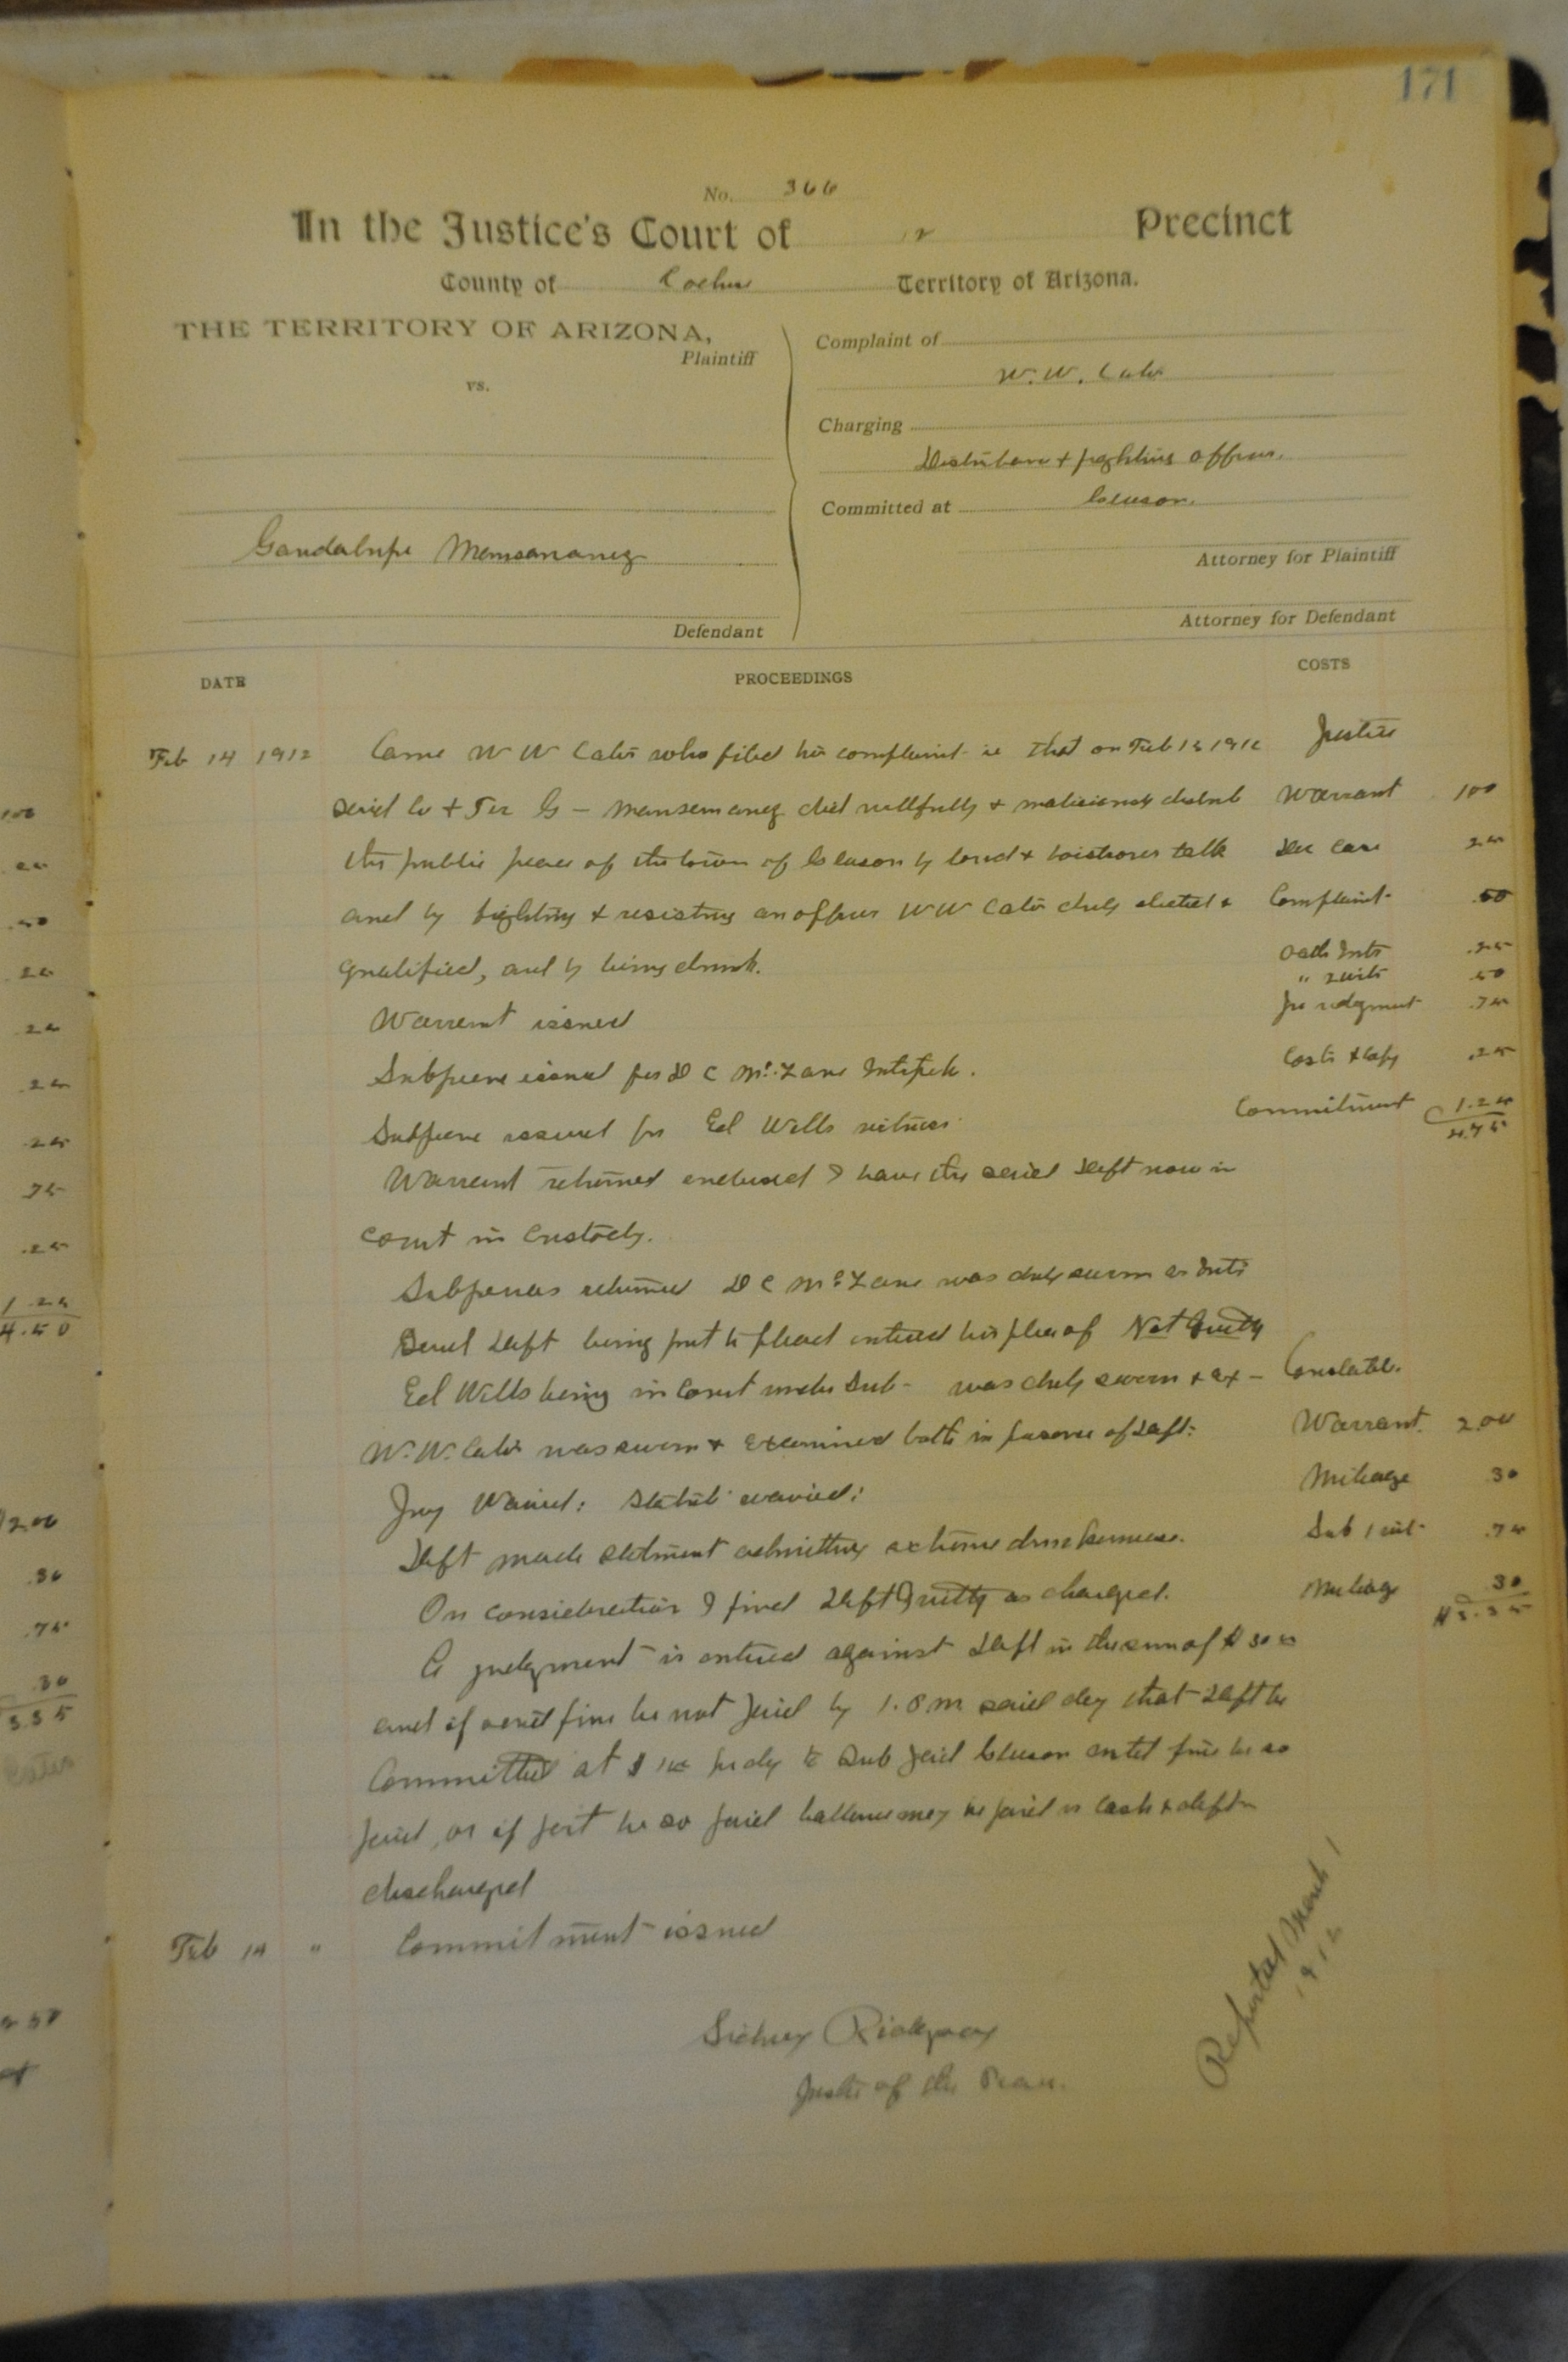 171
No. 366
In the Justice's Court of 12 Precinct
County of Cochise Territory of Arizona.
THE TERRITORY OF ARIZONA,
Plaintiff
vs.
Gaudalupe
Defendant
Complaint of
W. W.
Charging
Disturbance + fighting officer.
Committed at Gleeson.
Attorney for Plaintiff
Attorney for Defendant
DATE PROCEEDINGS COSTS
Feb 14 1912 Came W W who filed his complaint ie that on Feb 1912 Justice
said Co + Ter G - did willfully + maliciously disturb Warrant 100
the public peace of the town of Gleeson by loud + boistrous talk Doc Case 25
and by fighting + resisting an officer W W duly elected + Complaint .50
qualified, and by being drunk. Oath Int .25
" 2 wits 50
Warrant issued judgment .75
Subpoene issued for D C McZane . Costs + Copy .25
Subpoene issued for Ed Wells witness Commitment 1.25
4.75
Warrant returned endorsed I have the said Deft now in
court in Custody.
Subpenas returned D C McZane was duly sworn as Int
Said Deft being put to plead entered his plea of Not Guilty
Ed Wells being in Court under Sub - was duly sworn + ex - Constable.
W. W. was sworn + Examined both in presence of Deft. Warrant. 2.00
Jury Waived: Mileage 30
Deft made statment admitting extreme drunkenness. Sub 1 wit .75
On consideration I find Deft Guilty as charged. Mileage 30
3.35
A judgment is entered against Deft in the sum of $30 00
and if said fine be not paid by 1. P.M said day that Deft be
Committed at $1 00 pr dy to Sub Jail Gleeson until fine be so
paid, or if part be so paid ballance may be paid in cash + deft
discharged
Feb 14 " Commitment issued
Sidney Ridgway
Justice of the Peace.
Reported March 1
1912